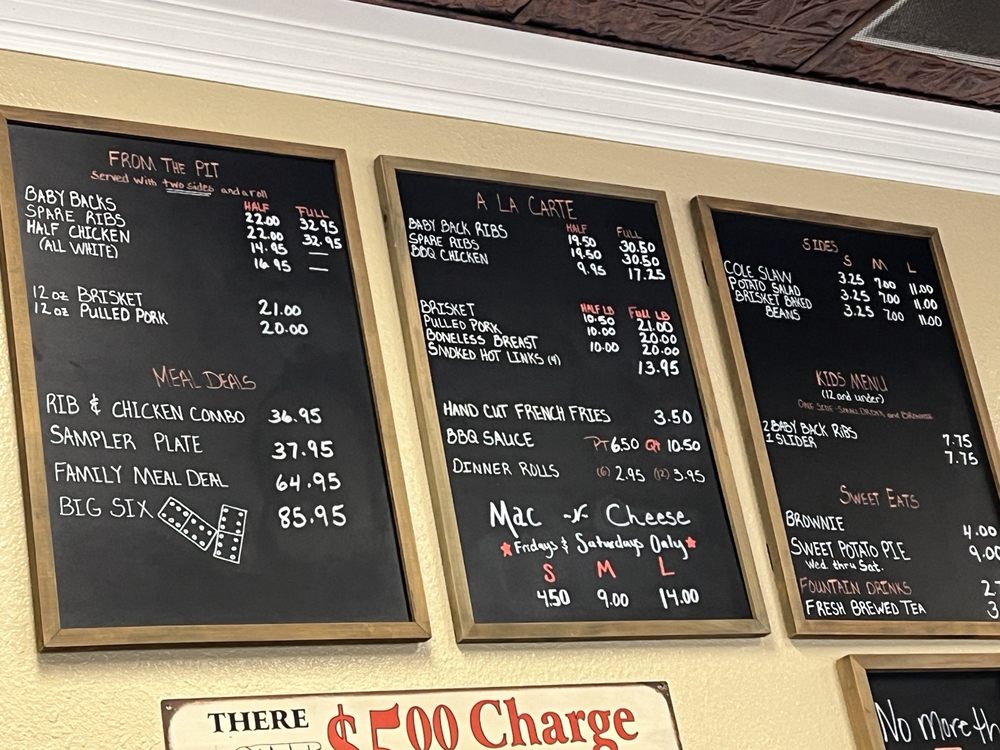 FROM THE PIT
Served with two sides and a roll
HALF FULL
BABY BACKS 22.00 32.95
SPARE RIBS 22.00 32.95
HALF CHICKEN 14.95 —
(ALL WHITE) 16.95 —
12 oz BRISKET 21.00
12 oz PULLED PORK 20.00
MEAL DEALS
RIB & CHICKEN COMBO 36.95
SAMPLER PLATE 37.95
FAMILY MEAL DEAL 64.95
BIG SIX 85.95
A LA CARTE
HALF FULL
BABY BACK RIBS 19.50 30.50
SPARE RIBS 19.50 30.50
BBQ CHICKEN 9.95 17.25
HALF LB FULL LB
BRISKET 10.50 21.00
PULLED PORK 10.00 20.00
BONELESS BREAST 10.00 20.00
SMOKED HOT LINKS (4) 13.95
HAND CUT FRENCH FRIES 3.50
BBQ SAUCE PT 6.50 QT 10.50
DINNER ROLLS (6) 2.95 (12) 3.95
Mac -n- Cheese
Fridays & Saturdays Only
S M L
4.50 9.00 14.00
SIDES
S M L
COLE SLAW 3.25 7.00 11.00
POTATO SALAD 3.25 7.00 11.00
BRISKET BAKED 3.25 7.00 11.00
BEANS
KIDS MENU
(12 and under)
ONE SIDE SMALL DRINK and BROWNIE
2 BABY BACK RIBS 7.75
1 SLIDER 7.75
SWEET EATS
BROWNIE 4.00
SWEET POTATO PIE 9.00
Wed. thru Sat.
FOUNTAIN DRINKS 2
FRESH BREWED TEA 3
THERE $5.00 Charge
No more th